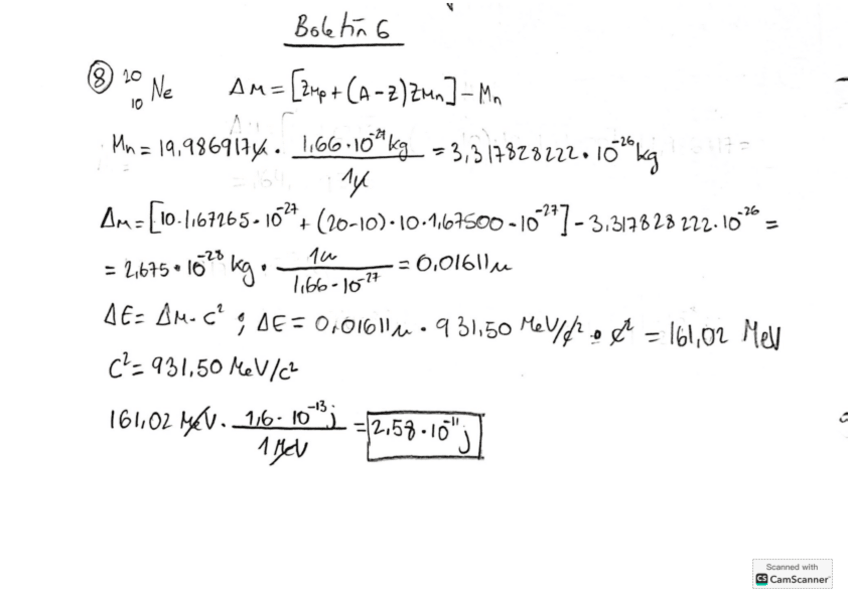 Boletín 6
⑧ ²⁰₁₀Ne ΔM = [ZMp + (A-Z)ZMn] - Mn
Mn = 19,986917u · 1,66·10⁻²⁷kg / 1u = 3,317828222·10⁻²⁶kg
ΔM = [10·1,67265·10⁻²⁷ + (20-10)·10·1,67500·10⁻²⁷] - 3,317828222·10⁻²⁶ =
= 2,675·10⁻²⁸ kg · 1u / 1,66·10⁻²⁷ = 0,01611u
ΔE = ΔM·c² ; ΔE = 0,01611u · 931,50 MeV/c² · c² = 161,02 MeV
C² = 931,50 MeV/c²
161,02 MeV · 1,6·10⁻¹³j / 1 MeV = 2,58·10⁻¹¹j
Scanned with
CS CamScanner